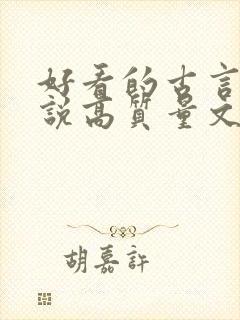 好看的古言
说高质量文
胡嘉許